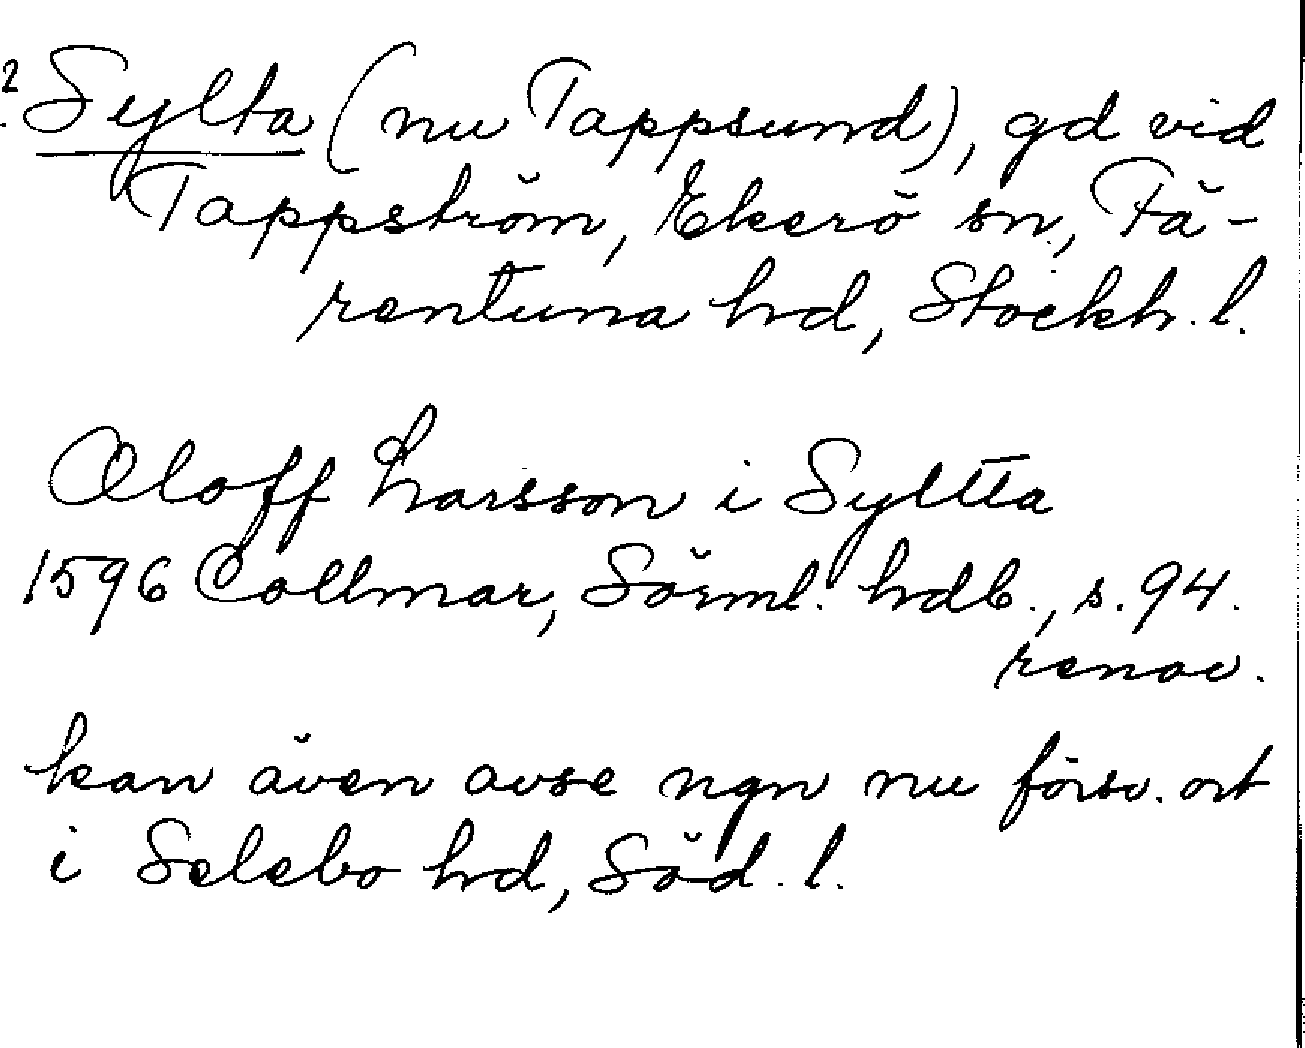 2 Sylta (nu Tappsund), gd vid
Tappström, Ekerö sn., Fä-
rentuna hd, Stockh. l.
Oloff Larsson i Syltta
1596 Collmar, Sörml. hdb., s. 94.
renov.
kan även avse ngn nu försv. ort
i Selebo hd, Söd. l.